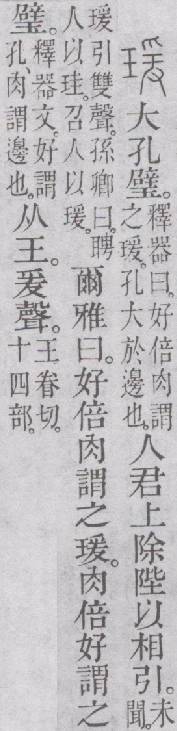 瑗大孔璧。釋器曰。好倍肉謂之瑗。孔大於邊也。人君上除陛以相引。未聞。
瑗引雙聲。孫卿曰。聘人以珪。召人以瑗。爾雅曰。好倍肉謂之瑗。肉倍好謂之
璧。釋器文。好謂孔肉謂邊也。从王。爰聲。王眷切。十四部。